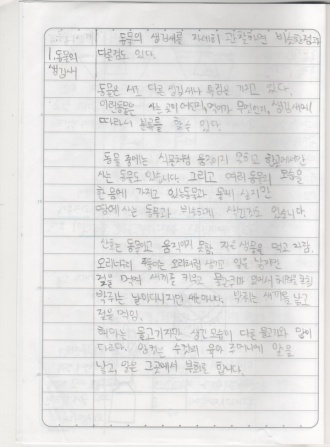 동물의 생김새를 자세히 관찰하면 비슷한점과
1.동물의 다른점도 있다.
생김새
동물은 서로 다른 생김새나 특징을 가지고 있다.
이런동물은 사는 곳이 어디인지, 먹이가 무엇인지, 생김새에
따라서 분류를 할수 있다
동물 중에는 식물처럼 움직이지 못하고
사는 동물도 있습니다. 그리고 여러 동물의 모습을
한몸에 가지고 있는동물과 물에 살지만
땅에 사는 동물과 비슷하게 생긴것도 있습니다.
산호는 동물이고 움직이지 못함, 작은 생물을 먹고 자람.
오리너구리 주둥이는 오리처럼 생기고 알을 낳지만
젖을 먹여 새끼를 키우고 물갈퀴가 있어서
박쥐는 날아다니지만 박쥐는 새끼를 낳고
젖을 먹임.
해마는 물고기지만 생긴 모습이 다른 물고기와 많이
다르다. 암컷은 수컷의 육아 주머니에 알을
낳고, 알은 그곳에서 부화를 합니다.